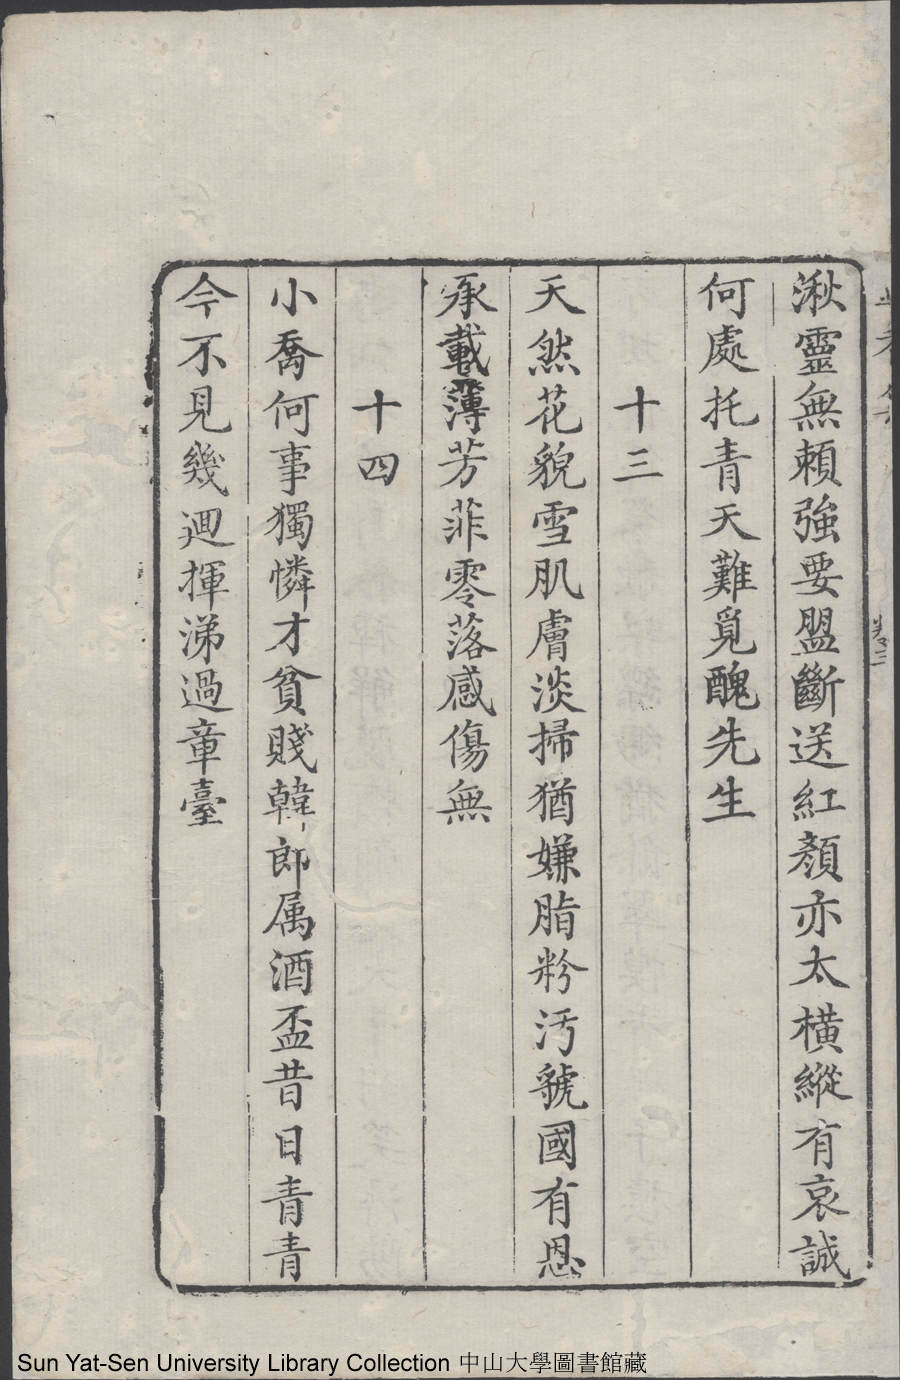 湫靈無頼強要盟斷送紅顏亦太橫縱有哀誠
何處托青天難覓醜先生
十三
天然花貌雪肌膚淡掃猶嫌脂粉汚虢國有恩
承載薄芳菲零落感傷無
十四
小喬何事獨憐才貧賤韓郎属酒盃昔日青青
今不見幾迴揮涕過章臺
Sun Yat-Sen University Library Collection 中山大學圖書館藏